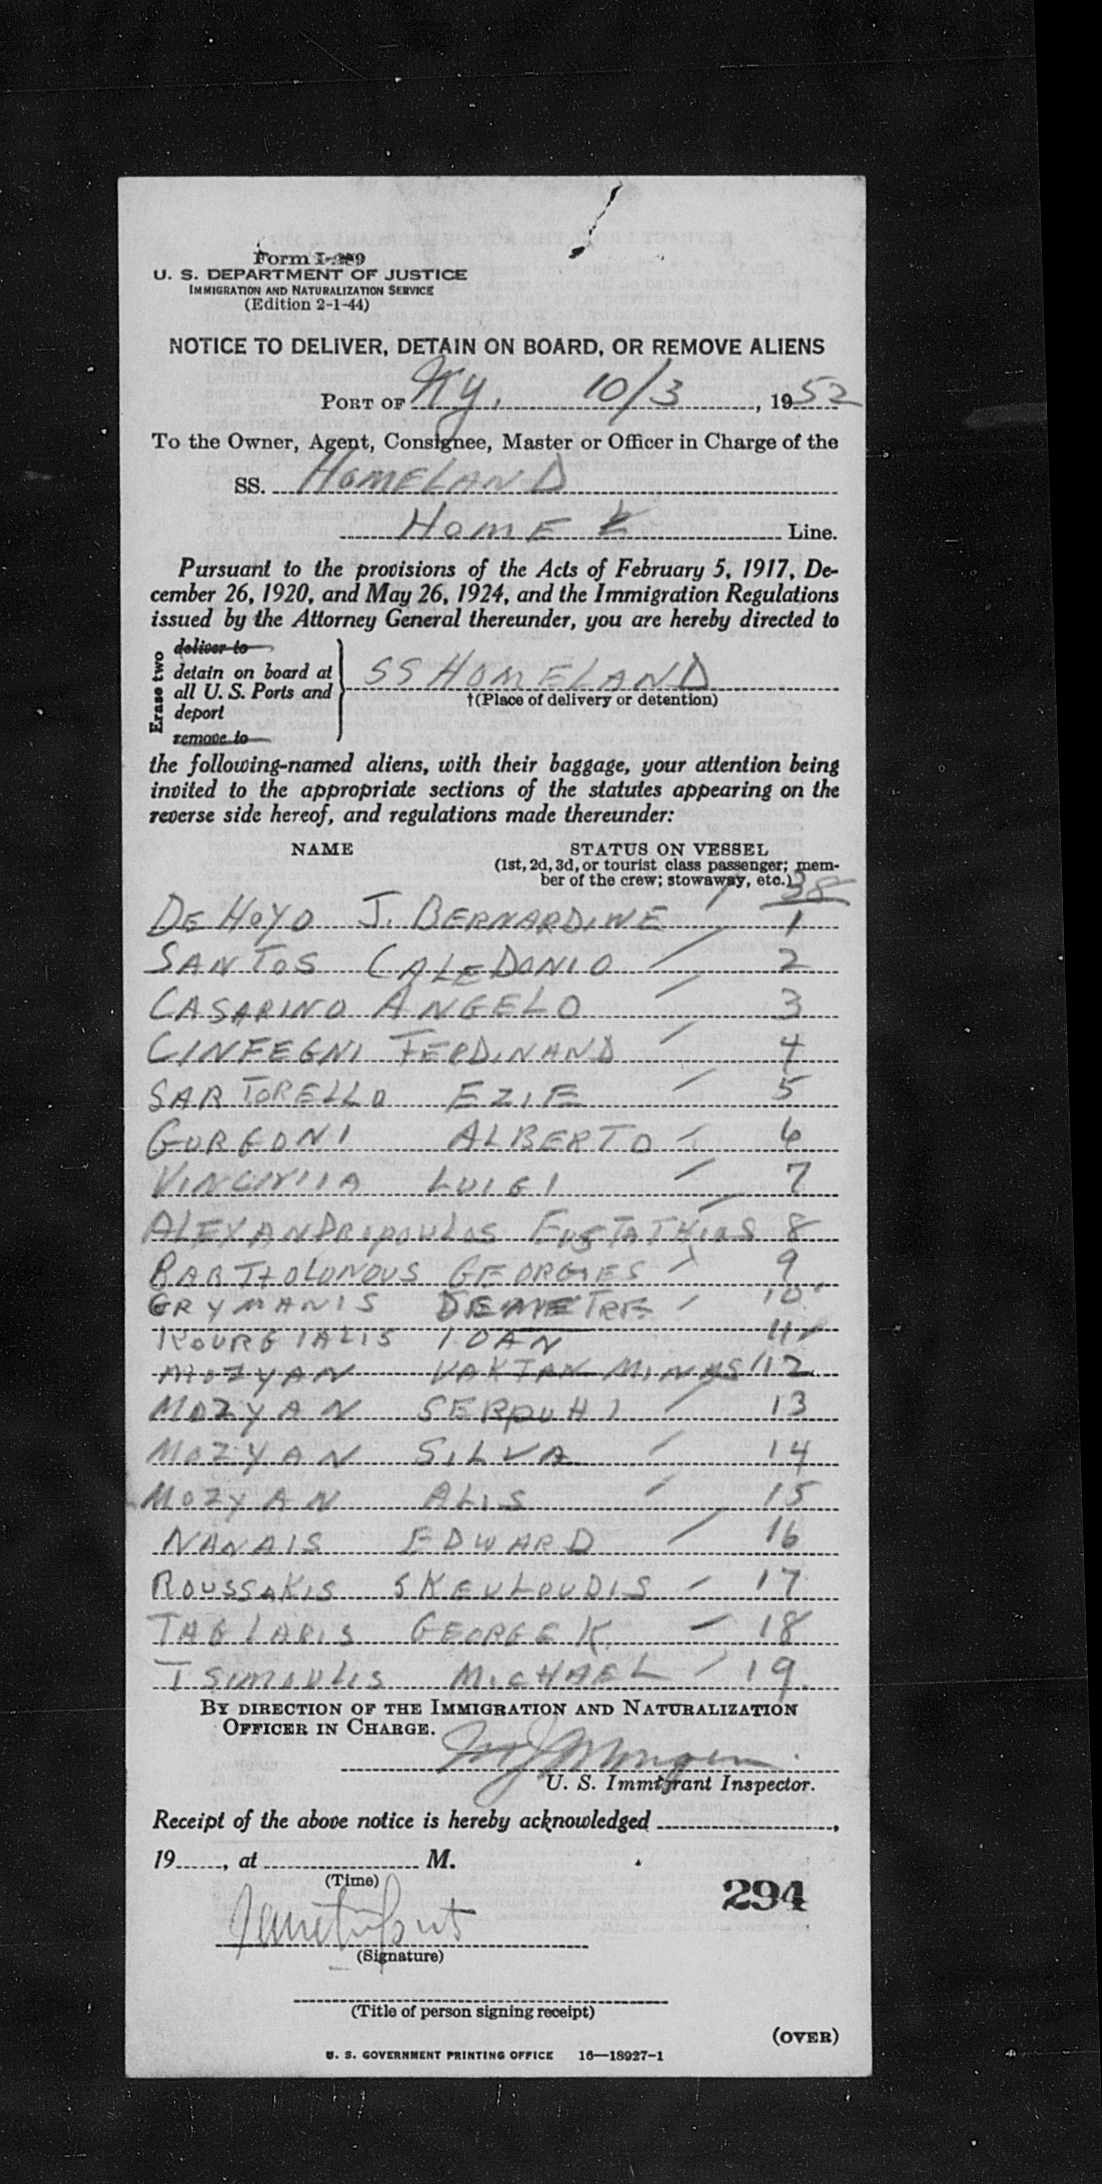 Form I-259
U. S. DEPARTMENT OF JUSTICE
IMMIGRATION AND NATURALIZATION SERVICE
(Edition 2-1-44)
NOTICE TO DELIVER, DETAIN ON BOARD, OR REMOVE ALIENS
PORT OF Ny, 10/3, 1952
To the Owner, Agent, Consignee, Master or Officer in Charge of the
SS. HOMELAND
HOME Line.
Pursuant to the provisions of the Acts of February 5, 1917, De-
cember 26, 1920, and May 26, 1924, and the Immigration Regulations
issued by the Attorney General thereunder, you are hereby directed to
Erase two
deliver to
detain on board at
all U. S. Ports and
deport
remove to
SS HOMELAND
†(Place of delivery or detention)
the following-named aliens, with their baggage, your attention being
invited to the appropriate sections of the statutes appearing on the
reverse side hereof, and regulations made thereunder:
NAME STATUS ON VESSEL
(1st, 2d, 3d, or tourist class passenger; mem-
ber of the crew; stowaway, etc.) 38
DE HOYO J. BERNARDINE 1
SANTOS CALEDONIO 2
CASARINO ANGELO 3
CINFEGNI FERDINAND 4
SARTORELLO EZIE 5
GURGONI ALBERTO 6
LUIGI 7
ALEXANDROPOULOS EUSTATHIOS 8
BARTHOLONOUS GEORGES 9
GRYMANIS DEMETRE 10
KOURGIALIS IOAN 11
MOZYAN VAKTAN MINAS 12
MOZYAN SERPUHI 13
MOZYAN SILVA 14
MOZYAN ALIS 15
NANAIS EDWARD 16
ROUSSAKIS SKEULOUDIS 17
TAGLARIS GEORGE K. 18
TSIMOULIS MICHAEL 19
BY DIRECTION OF THE IMMIGRATION AND NATURALIZATION
OFFICER IN CHARGE.
U. S. Immigrant Inspector.
Receipt of the above notice is hereby acknowledged
19......, at .................... M.
(Time)
294
(Signature)
(Title of person signing receipt)
(OVER)
U. S. GOVERNMENT PRINTING OFFICE 16—18927-1